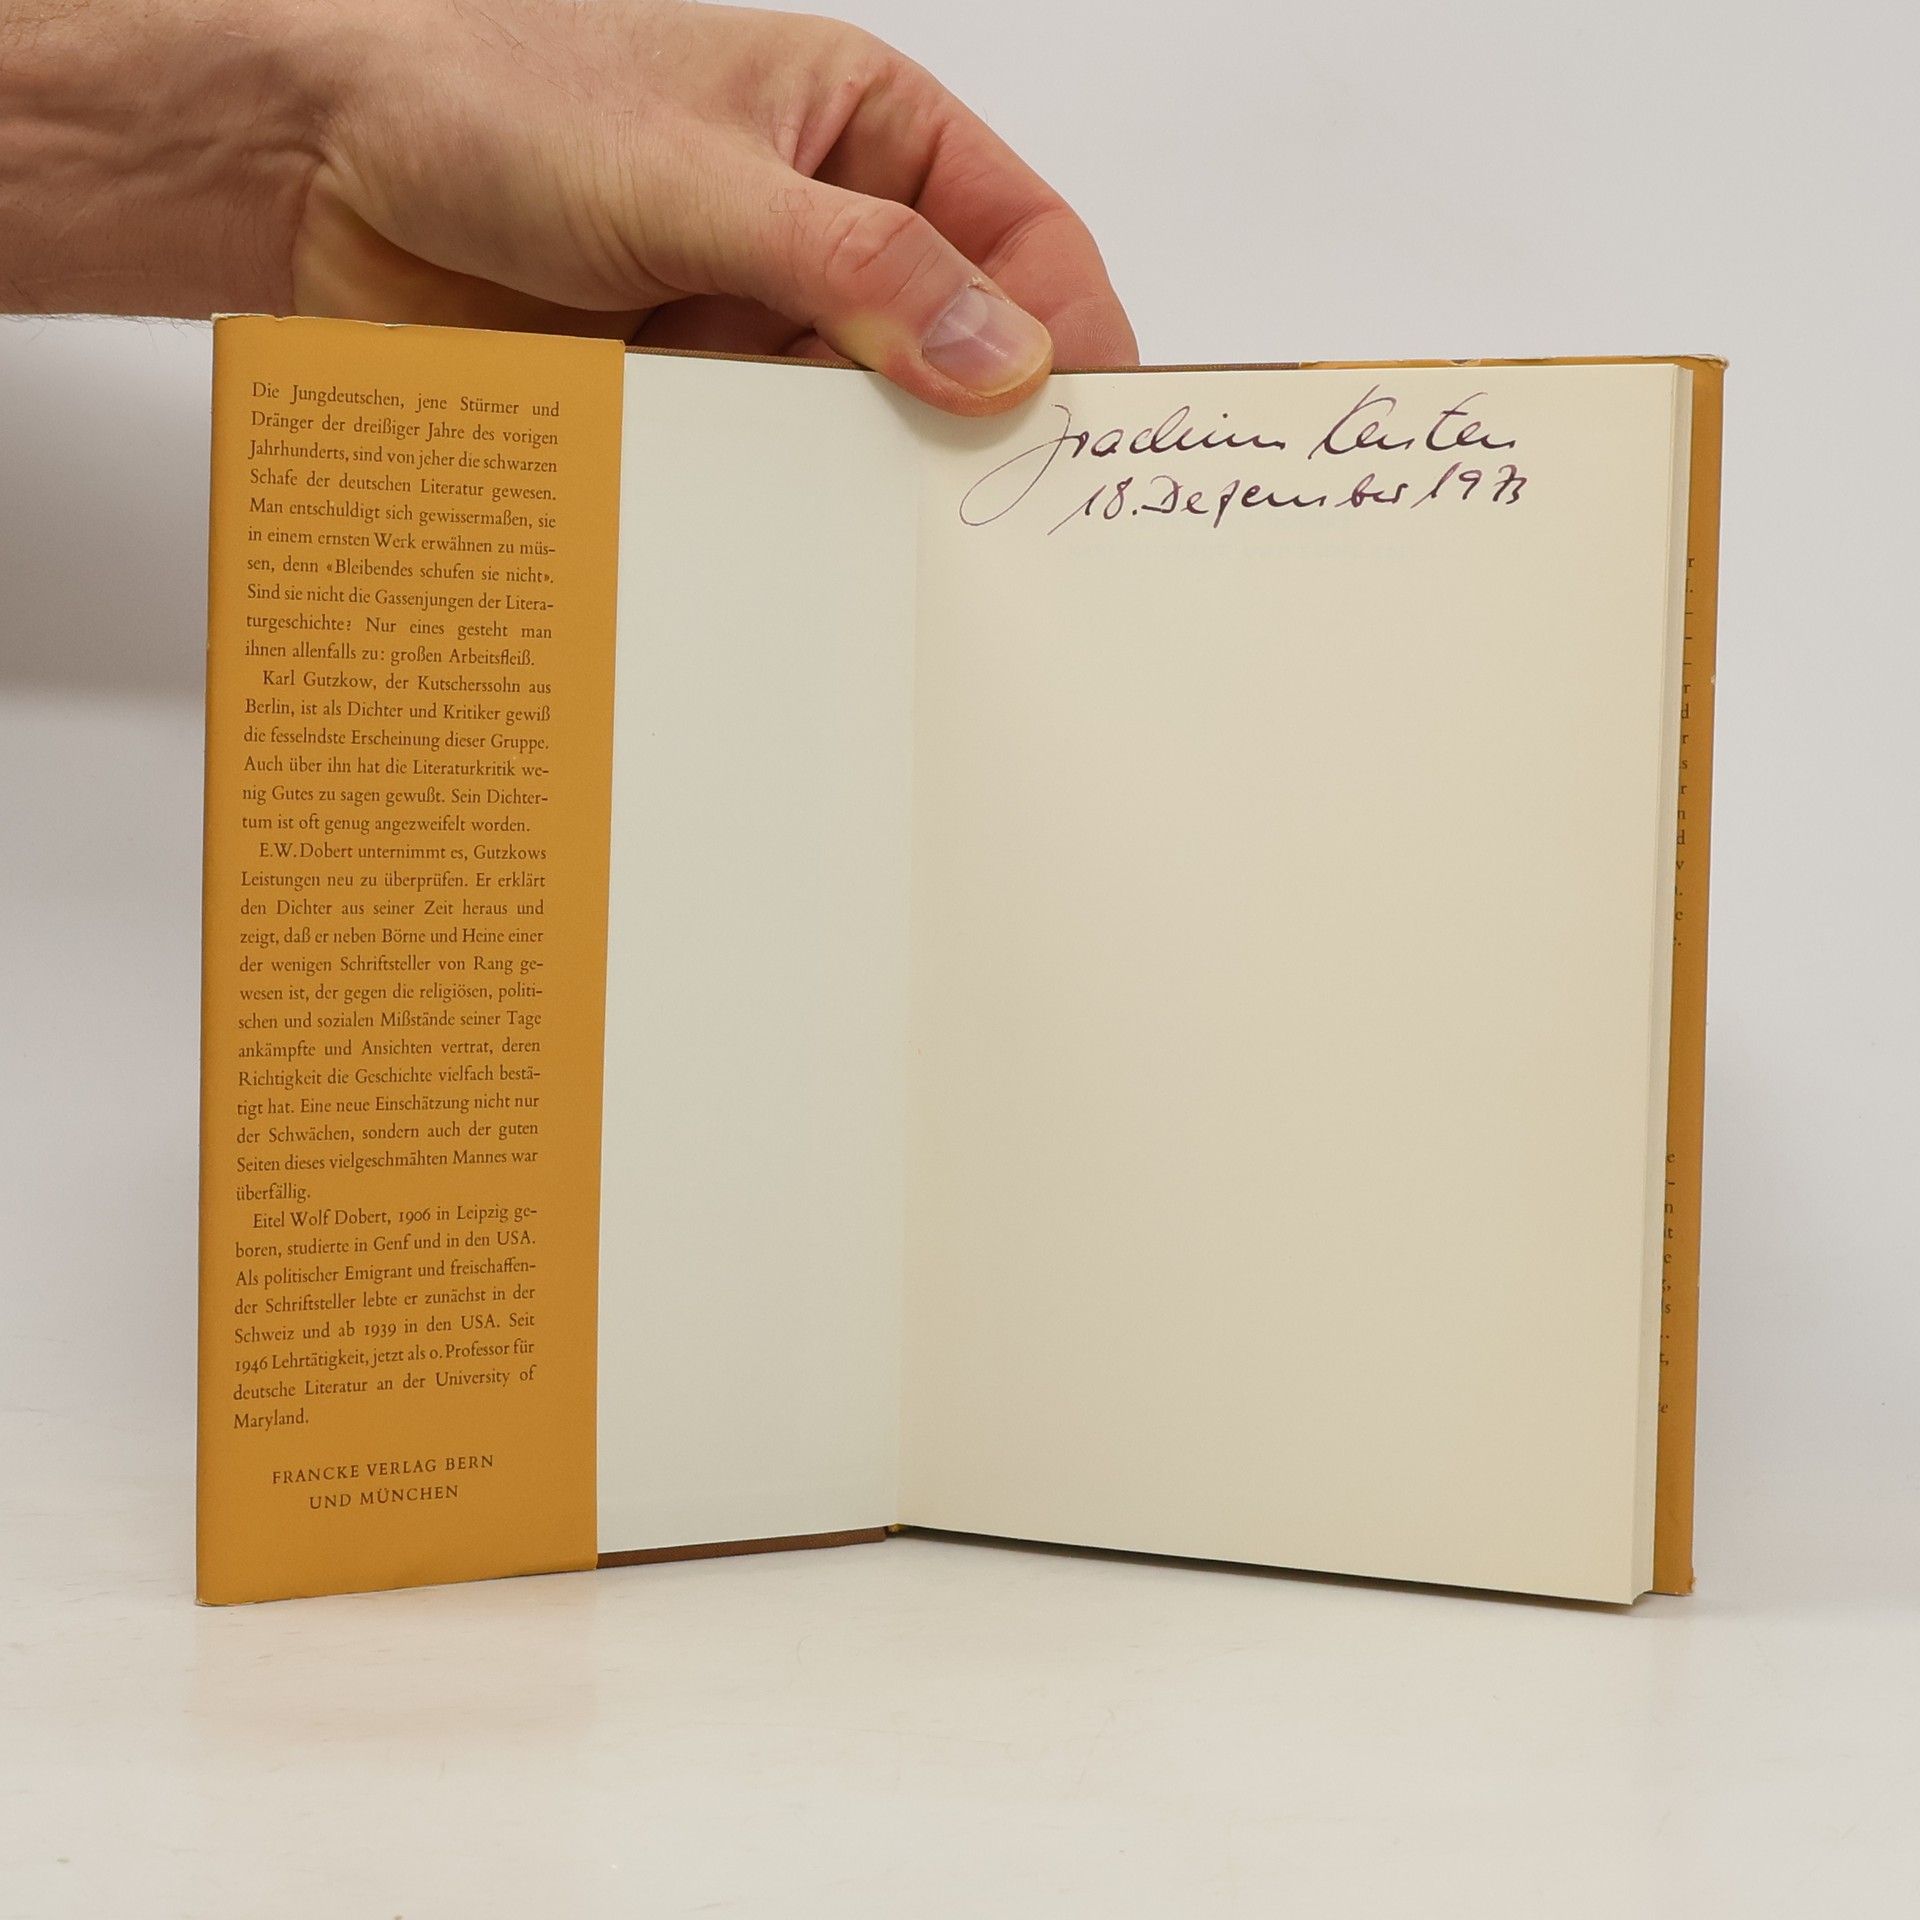 Die Jungdeutschen, jene Stürmer und
Dränger der dreißiger Jahre des vorigen
Jahrhunderts, sind von jeher die schwarzen
Schafe der deutschen Literatur gewesen.
Man entschuldigt sich gewissermaßen, sie
in einem ernsten Werk erwähnen zu müs-
sen, denn «Bleibendes schufen sie nicht».
Sind sie nicht die Gassenjungen der Litera-
turgeschichte? Nur eines gesteht man
ihnen allenfalls zu: großen Arbeitsfleiß.
Karl Gutzkow, der Kutscherssohn aus
Berlin, ist als Dichter und Kritiker gewiß
die fesselndste Erscheinung dieser Gruppe.
Auch über ihn hat die Literaturkritik we-
nig Gutes zu sagen gewußt. Sein Dichter-
tum ist oft genug angezweifelt worden.
E.W. Dobert unternimmt es, Gutzkows
Leistungen neu zu überprüfen. Er erklärt
den Dichter aus seiner Zeit heraus und
zeigt, daß er neben Börne und Heine einer
der wenigen Schriftsteller von Rang ge-
wesen ist, der gegen die religiösen, politi-
schen und sozialen Mißstände seiner Tage
ankämpfte und Ansichten vertrat, deren
Richtigkeit die Geschichte vielfach bestä-
tigt hat. Eine neue Einschätzung nicht nur
der Schwächen, sondern auch der guten
Seiten dieses vielgeschmähten Mannes war
überfällig.
Eitel Wolf Dobert, 1906 in Leipzig ge-
boren, studierte in Genf und in den USA.
Als politischer Emigrant und freischaffen-
der Schriftsteller lebte er zunächst in der
Schweiz und ab 1939 in den USA. Seit
1946 Lehrtätigkeit, jetzt als o. Professor für
deutsche Literatur an der University of
Maryland.
FRANCKE VERLAG BERN
UND MÜNCHEN
Joachim Kersten
18. Dezember 1973